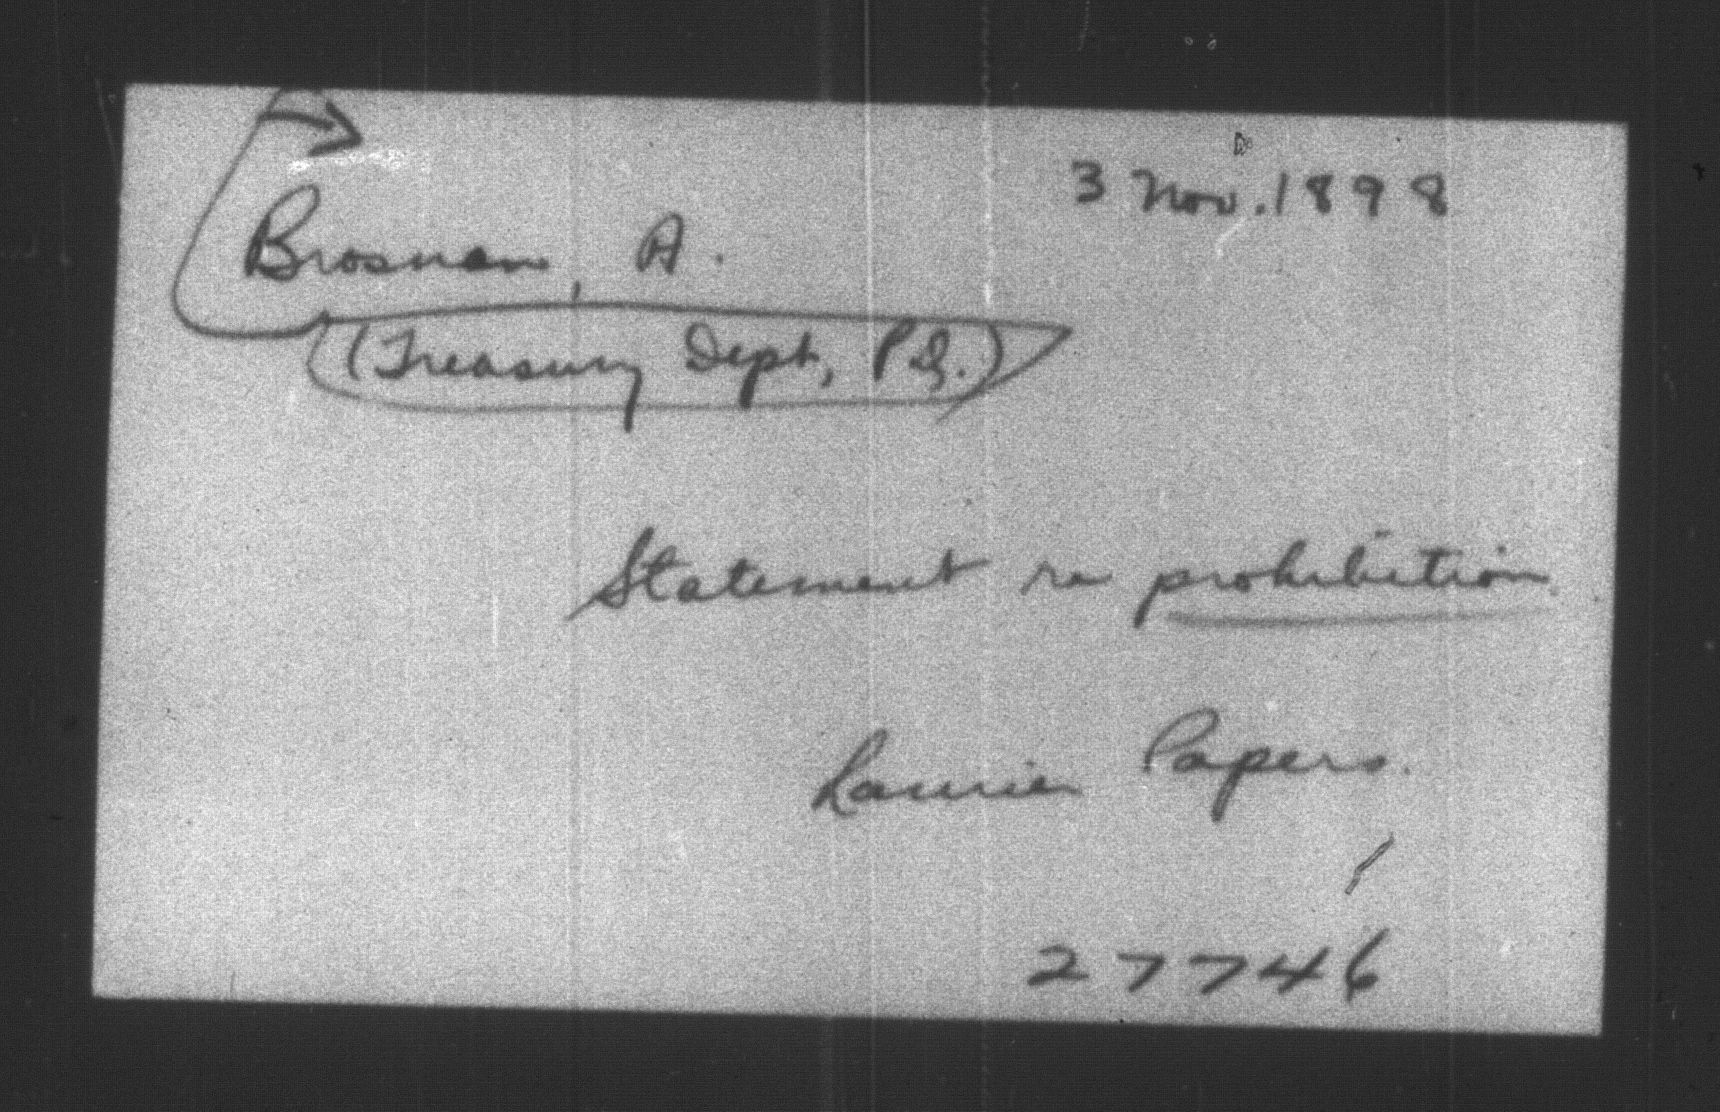 3 Nov. 1898
Brosnan, A.
(Treasury Dept, P.Q.)
Statement re prohibition.
Laurier Papers.
27746